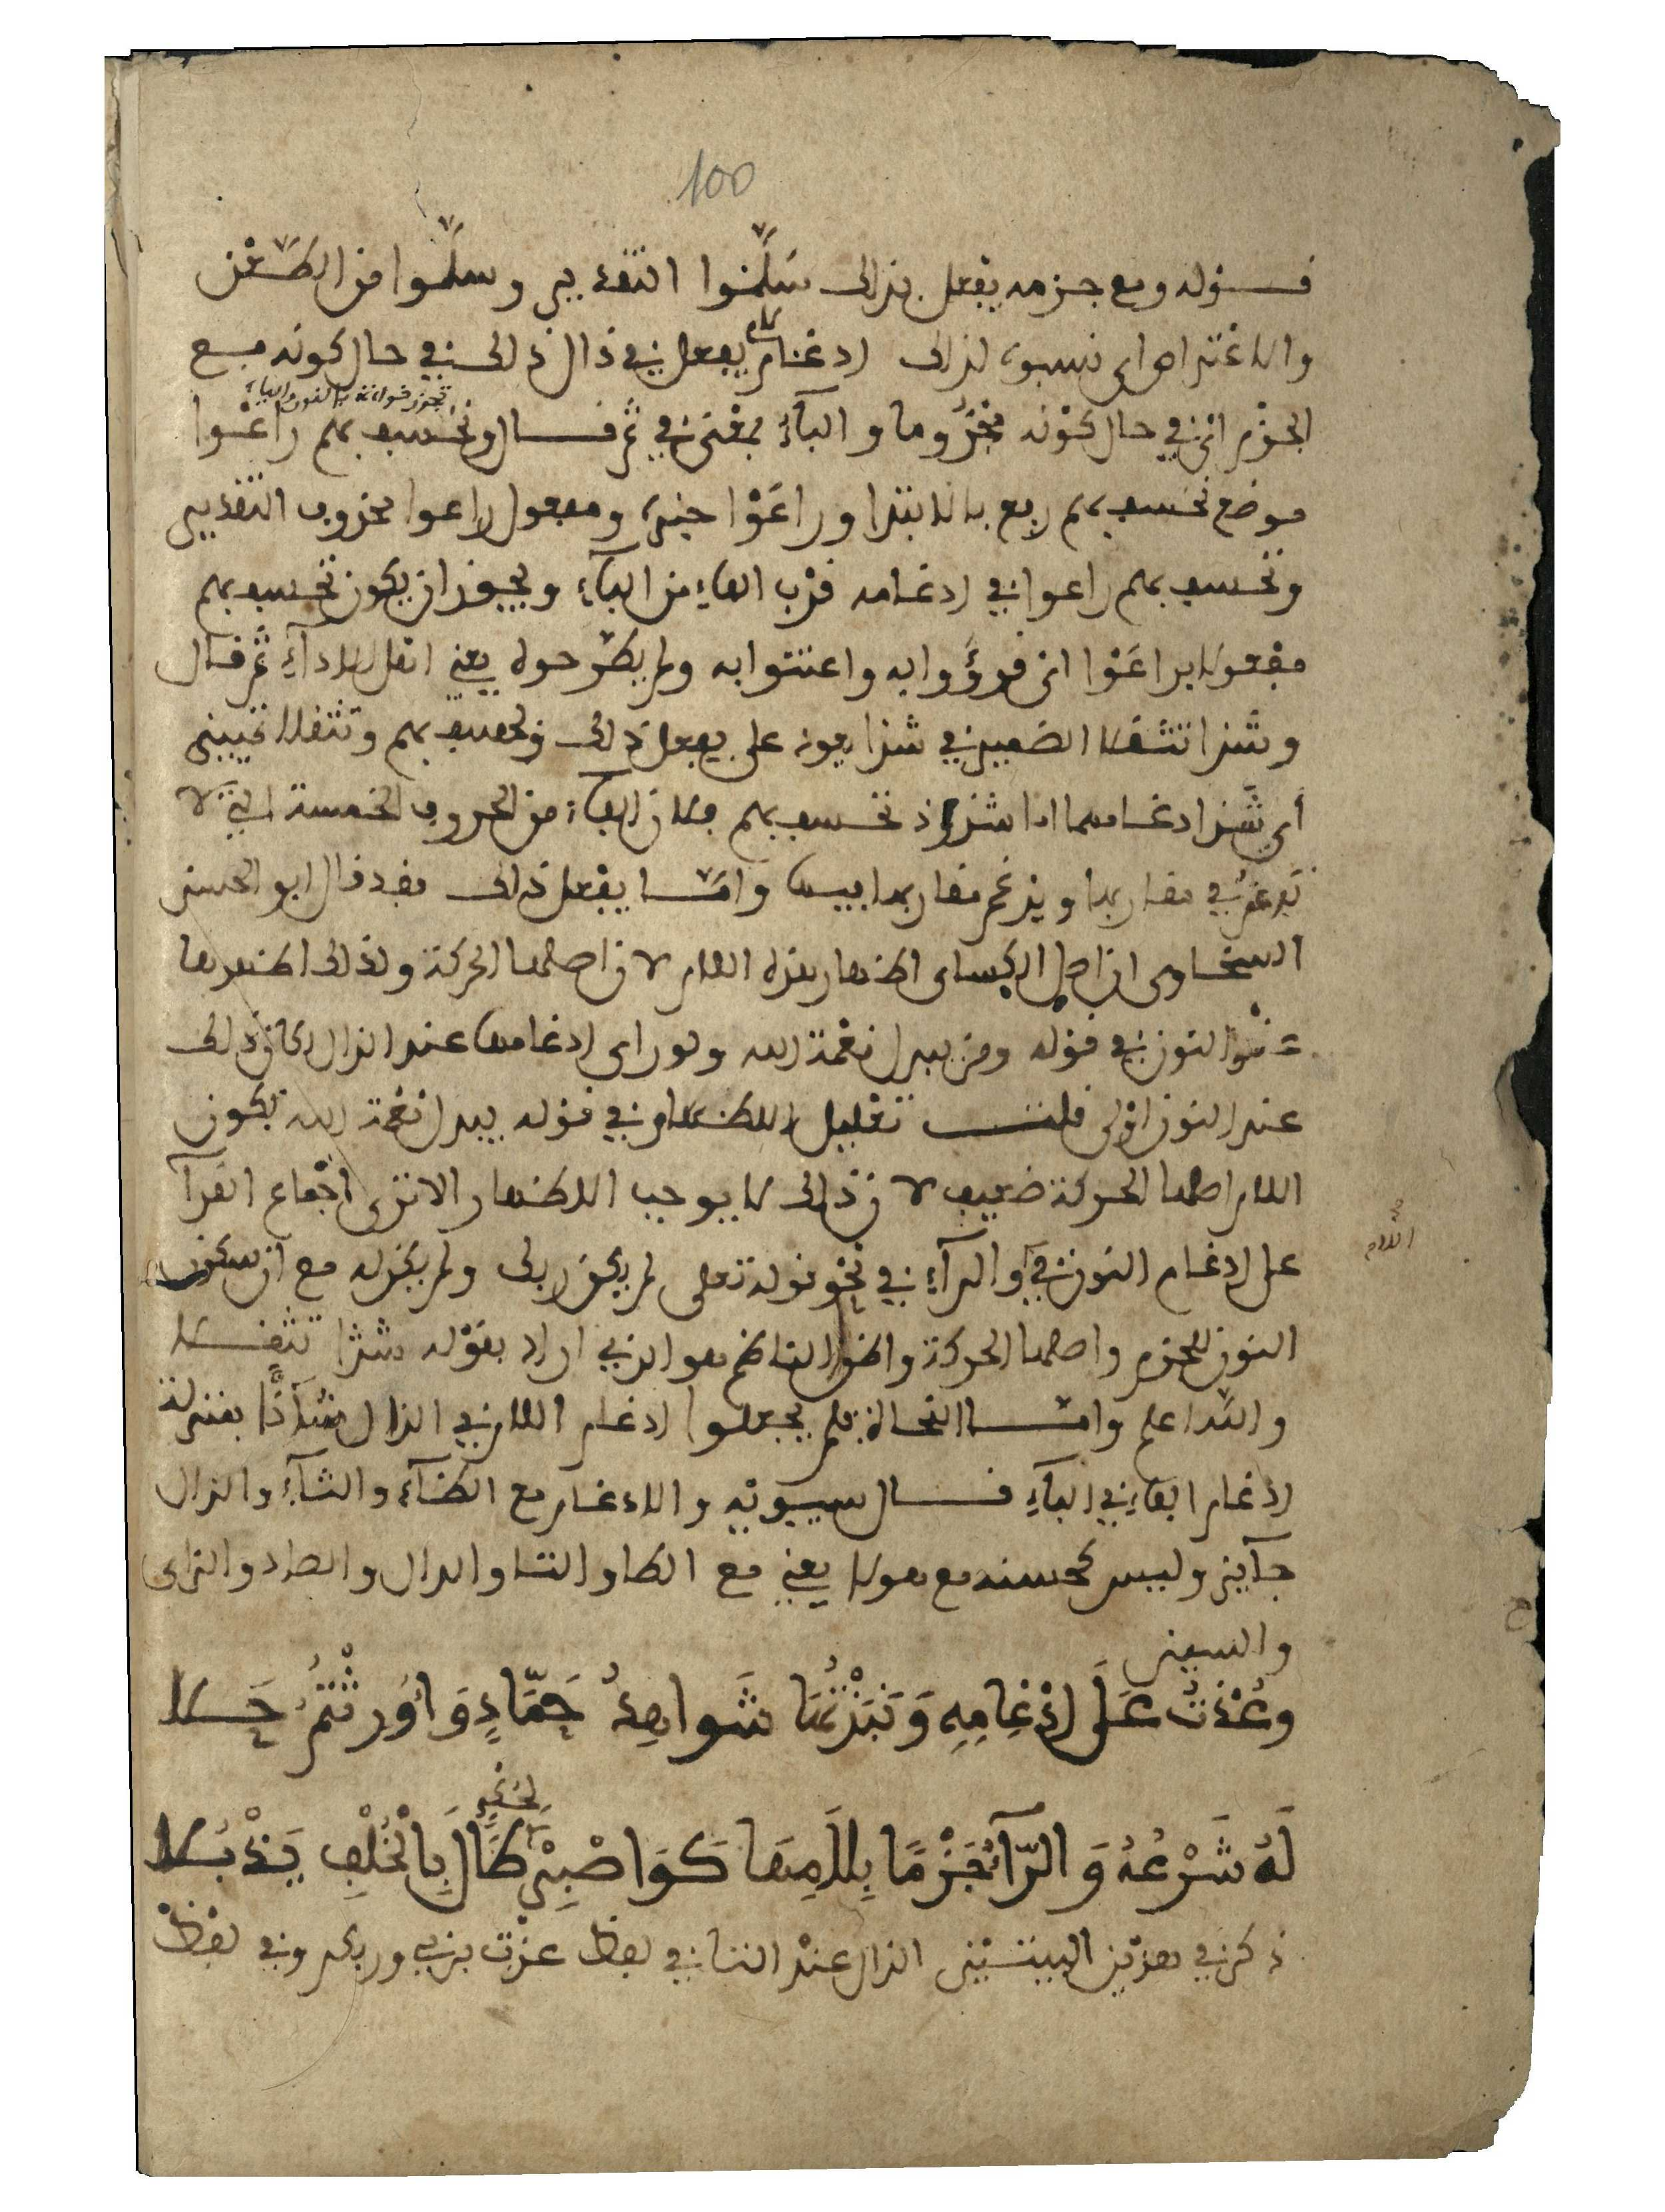 100
قوله ومع جزمه يفعل بذلك سلموا التقدير وسلموا من الطعن
والاعتراض اي نسبوه لذلك ادغام لام يفعل في ذال ذلك في حال كونه مع
الجزم اي في حال كونه مجزوما والباء بمعنى في ثم قال ونخسف بهم راعوا
تجوز قراءته بالنون والياء
موضع نخسف بهم رفع بالابتدا وراعوا خبره ومفعول راعوا محذوف التقدير
ونخسف بهم راعوا في ادغامه قرب الفاء من الباء ويجوز ان يكون نخسف بهم
مفعولا براعوا اي قرؤوا به واعتنوا به ولم يطرحوه يعني اهل الاداء ثم قال
وشذا تثقلا الضمير في شذا يعود على يفعل ذلك ونخسف بهم وتثقلا تمييز
أي شذ ادغامهما اما شذوذ نخسف بهم فلان الفاء من الحروف الخمسة التي لا
تدغم في مقاربها ويدغم مقاربها فيها واما يفعل ذلك فقد قال ابو الحسن
السخاوى ان اصل الكساى اظهار هذه اللام لان اصلها الحركة ولذلك اظهرها
عند النون في قوله ومن يبدل نعمة الله ولو راى ادغامها عند الذال لكان ذلك
عند النون اولى قلت تعليل الاظهار في قوله يبدل نعمة الله بكون
اللام اصلها الحركة ضعيف لان ذلك لا يوجب الاظهار الا ترى اجماع القراء
اللام
على ادغام النون في والراء في نحو قوله تعلى لم يكن ربك ولم يكن له مع ان سكون
النون للجزم واصلها الحركة واظن الناظم هو الذي اراد بقوله شذا تثقلا
والله اعلم واما النحاة فلم يجعلوا ادغام اللام في الذال شاذا بمنزلة
ادغام الفاء في الباء قال سيبويه والادغام مع الظاء والثاء والذال
جايز وليس كحسنه مع هولا يعني مع الطا والتا والدال والصاد والزاى
والسين
وعذت على ادغامه ونبذتها شواهد حماد واورثتم حلا
له شرعه والراء جزما بلامها كواصبر لحكم طال بالخلف يذبلا
ذكر في هذين البيتين الذال عند التا في لفظ عذت بربي وربكم وفي لفظ